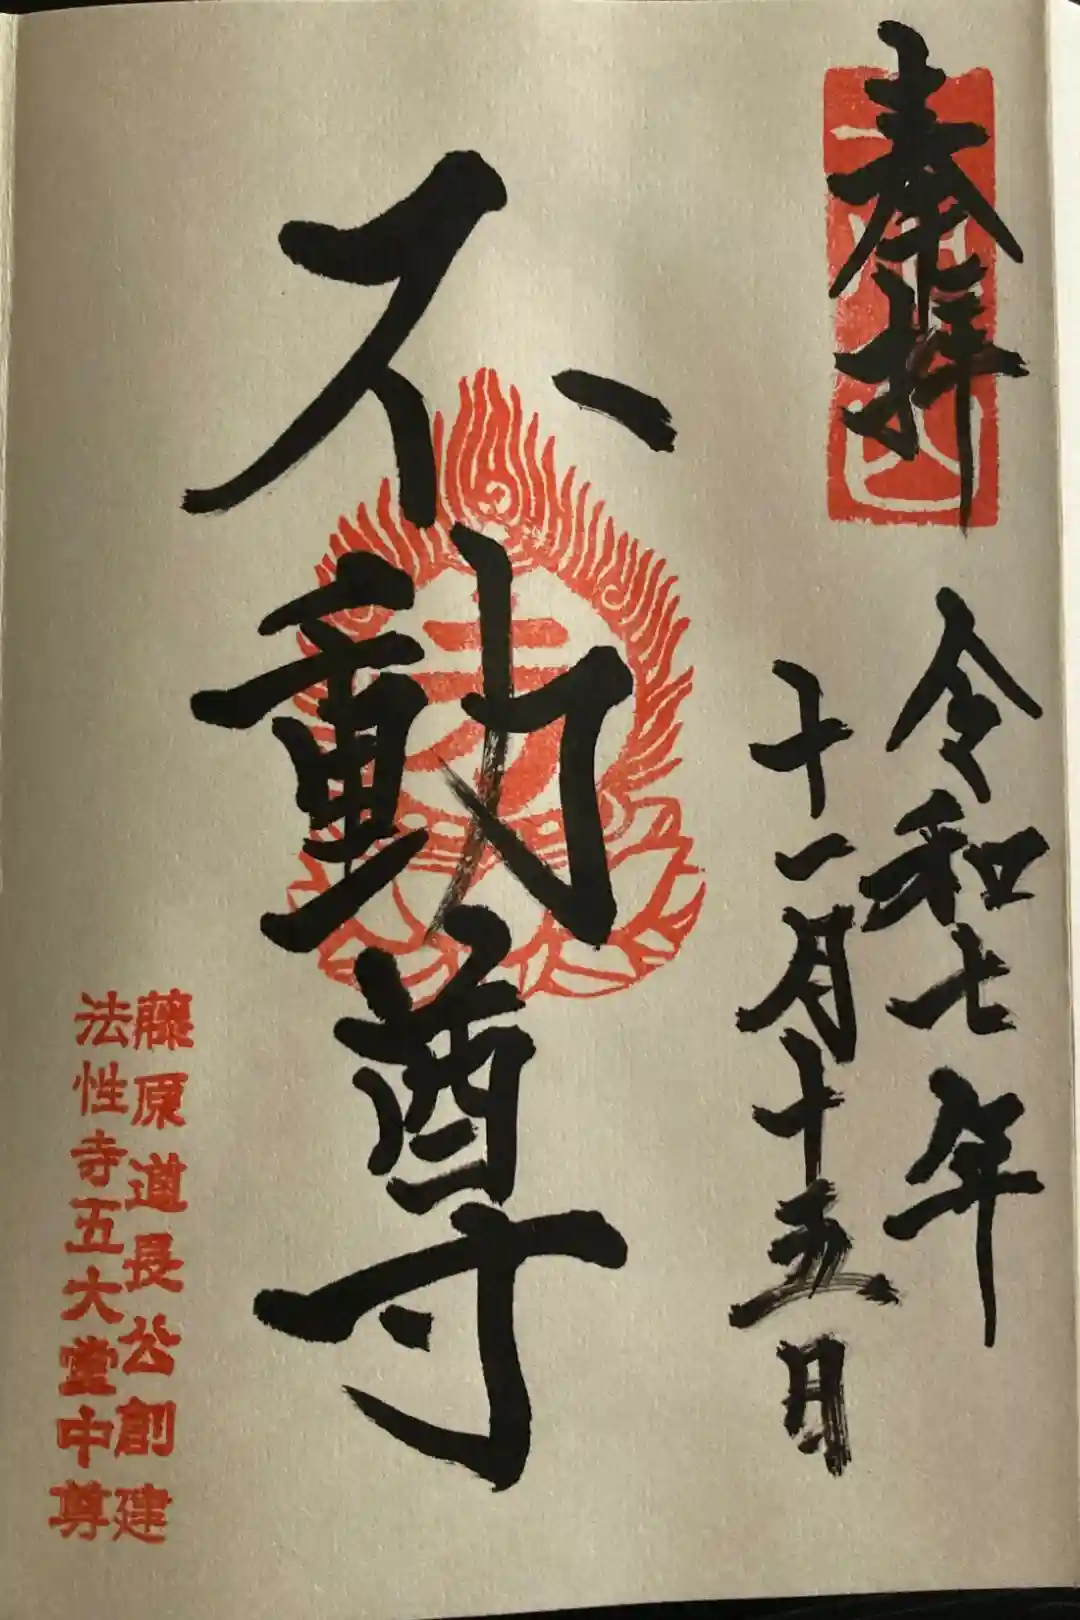 奉拝
令和七年
十一月十五日
不動尊
藤原道長公創建
法性寺五大堂中尊